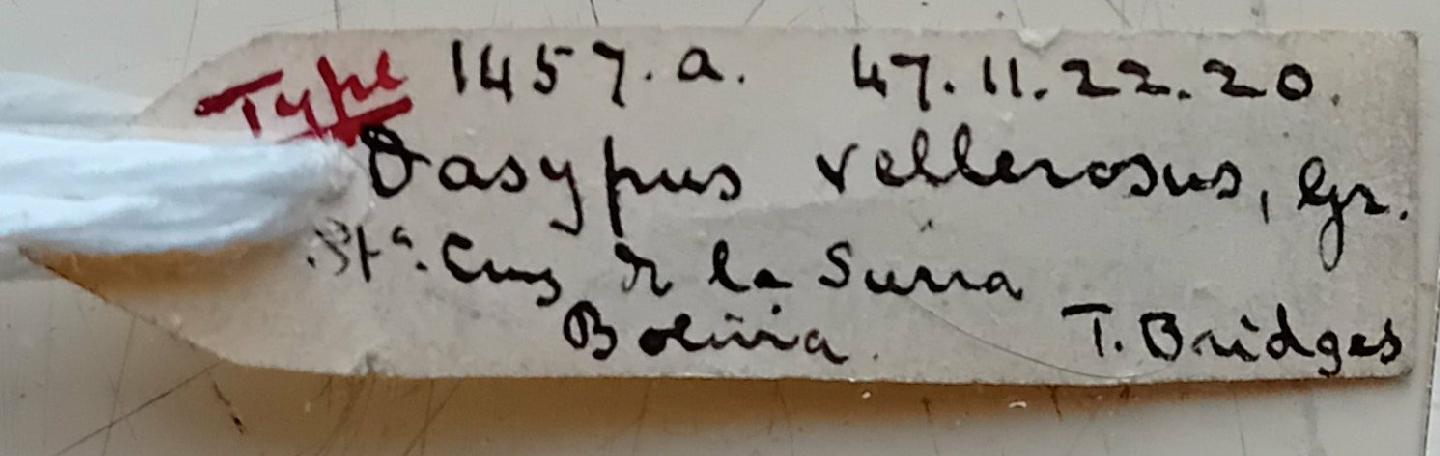 Type 1457.a. 47.11.22.20.
Dasypus vellerosus, Gr.
Sta. Cruz de la Sierra
Bolivia T. Bridges